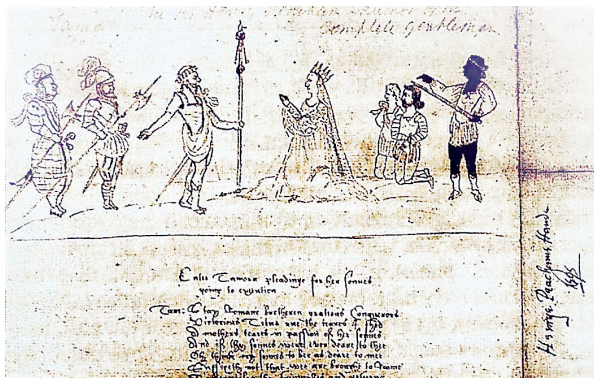 Complete gentleman
Enter Tamora pleadinge for her sonnes
going to execution
Tam: Stay Romane bretheren gratious Conquerors
Victorious Titus rue the teares I shed
A mothers teares in passion of her sonnes
And if thy sonnes were ever deare to thee
Oh thinke my sonnes to bee as deare to mee
Suffizeth not that wee are brought to Roome
Henrye Peachams Hande
1595